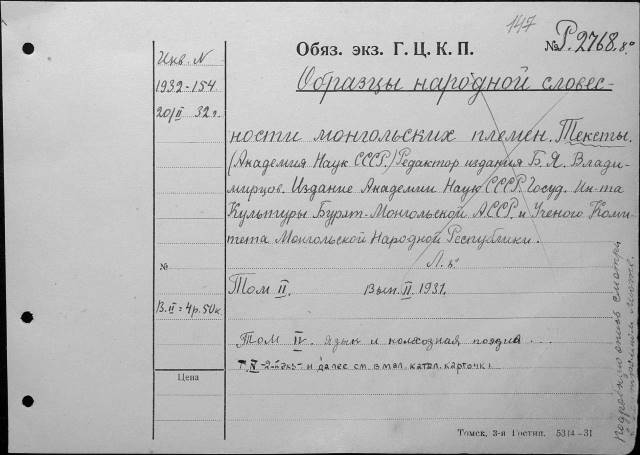 147
Обяз. экз. Г. Ц. К. П.
№ Р.2768. 8°
Инв. N
1932-154
20/II 32 г.
Образцы народной словес-
ности монгольских племен. Тексты.
(Академия Наук СССР.) Редактор издания Б. Я. Влади-
мирцов. Издание Академии Наук СССР. Госуд. Ин-та
Культуры Бурят-Монгольской АССР. и Ученого Коми-
тета Монгольской Народной Республики.
Л. 8°
№
Том II. Вып. II. 1931.
В. II = 4 р. 50 к.
Том IV. язык и колхозная поэзия ...
и далее см. в мал. катал. карточк.
Цена
Подробную опись смотри
Томск, 3-я Гостип. 5314-31